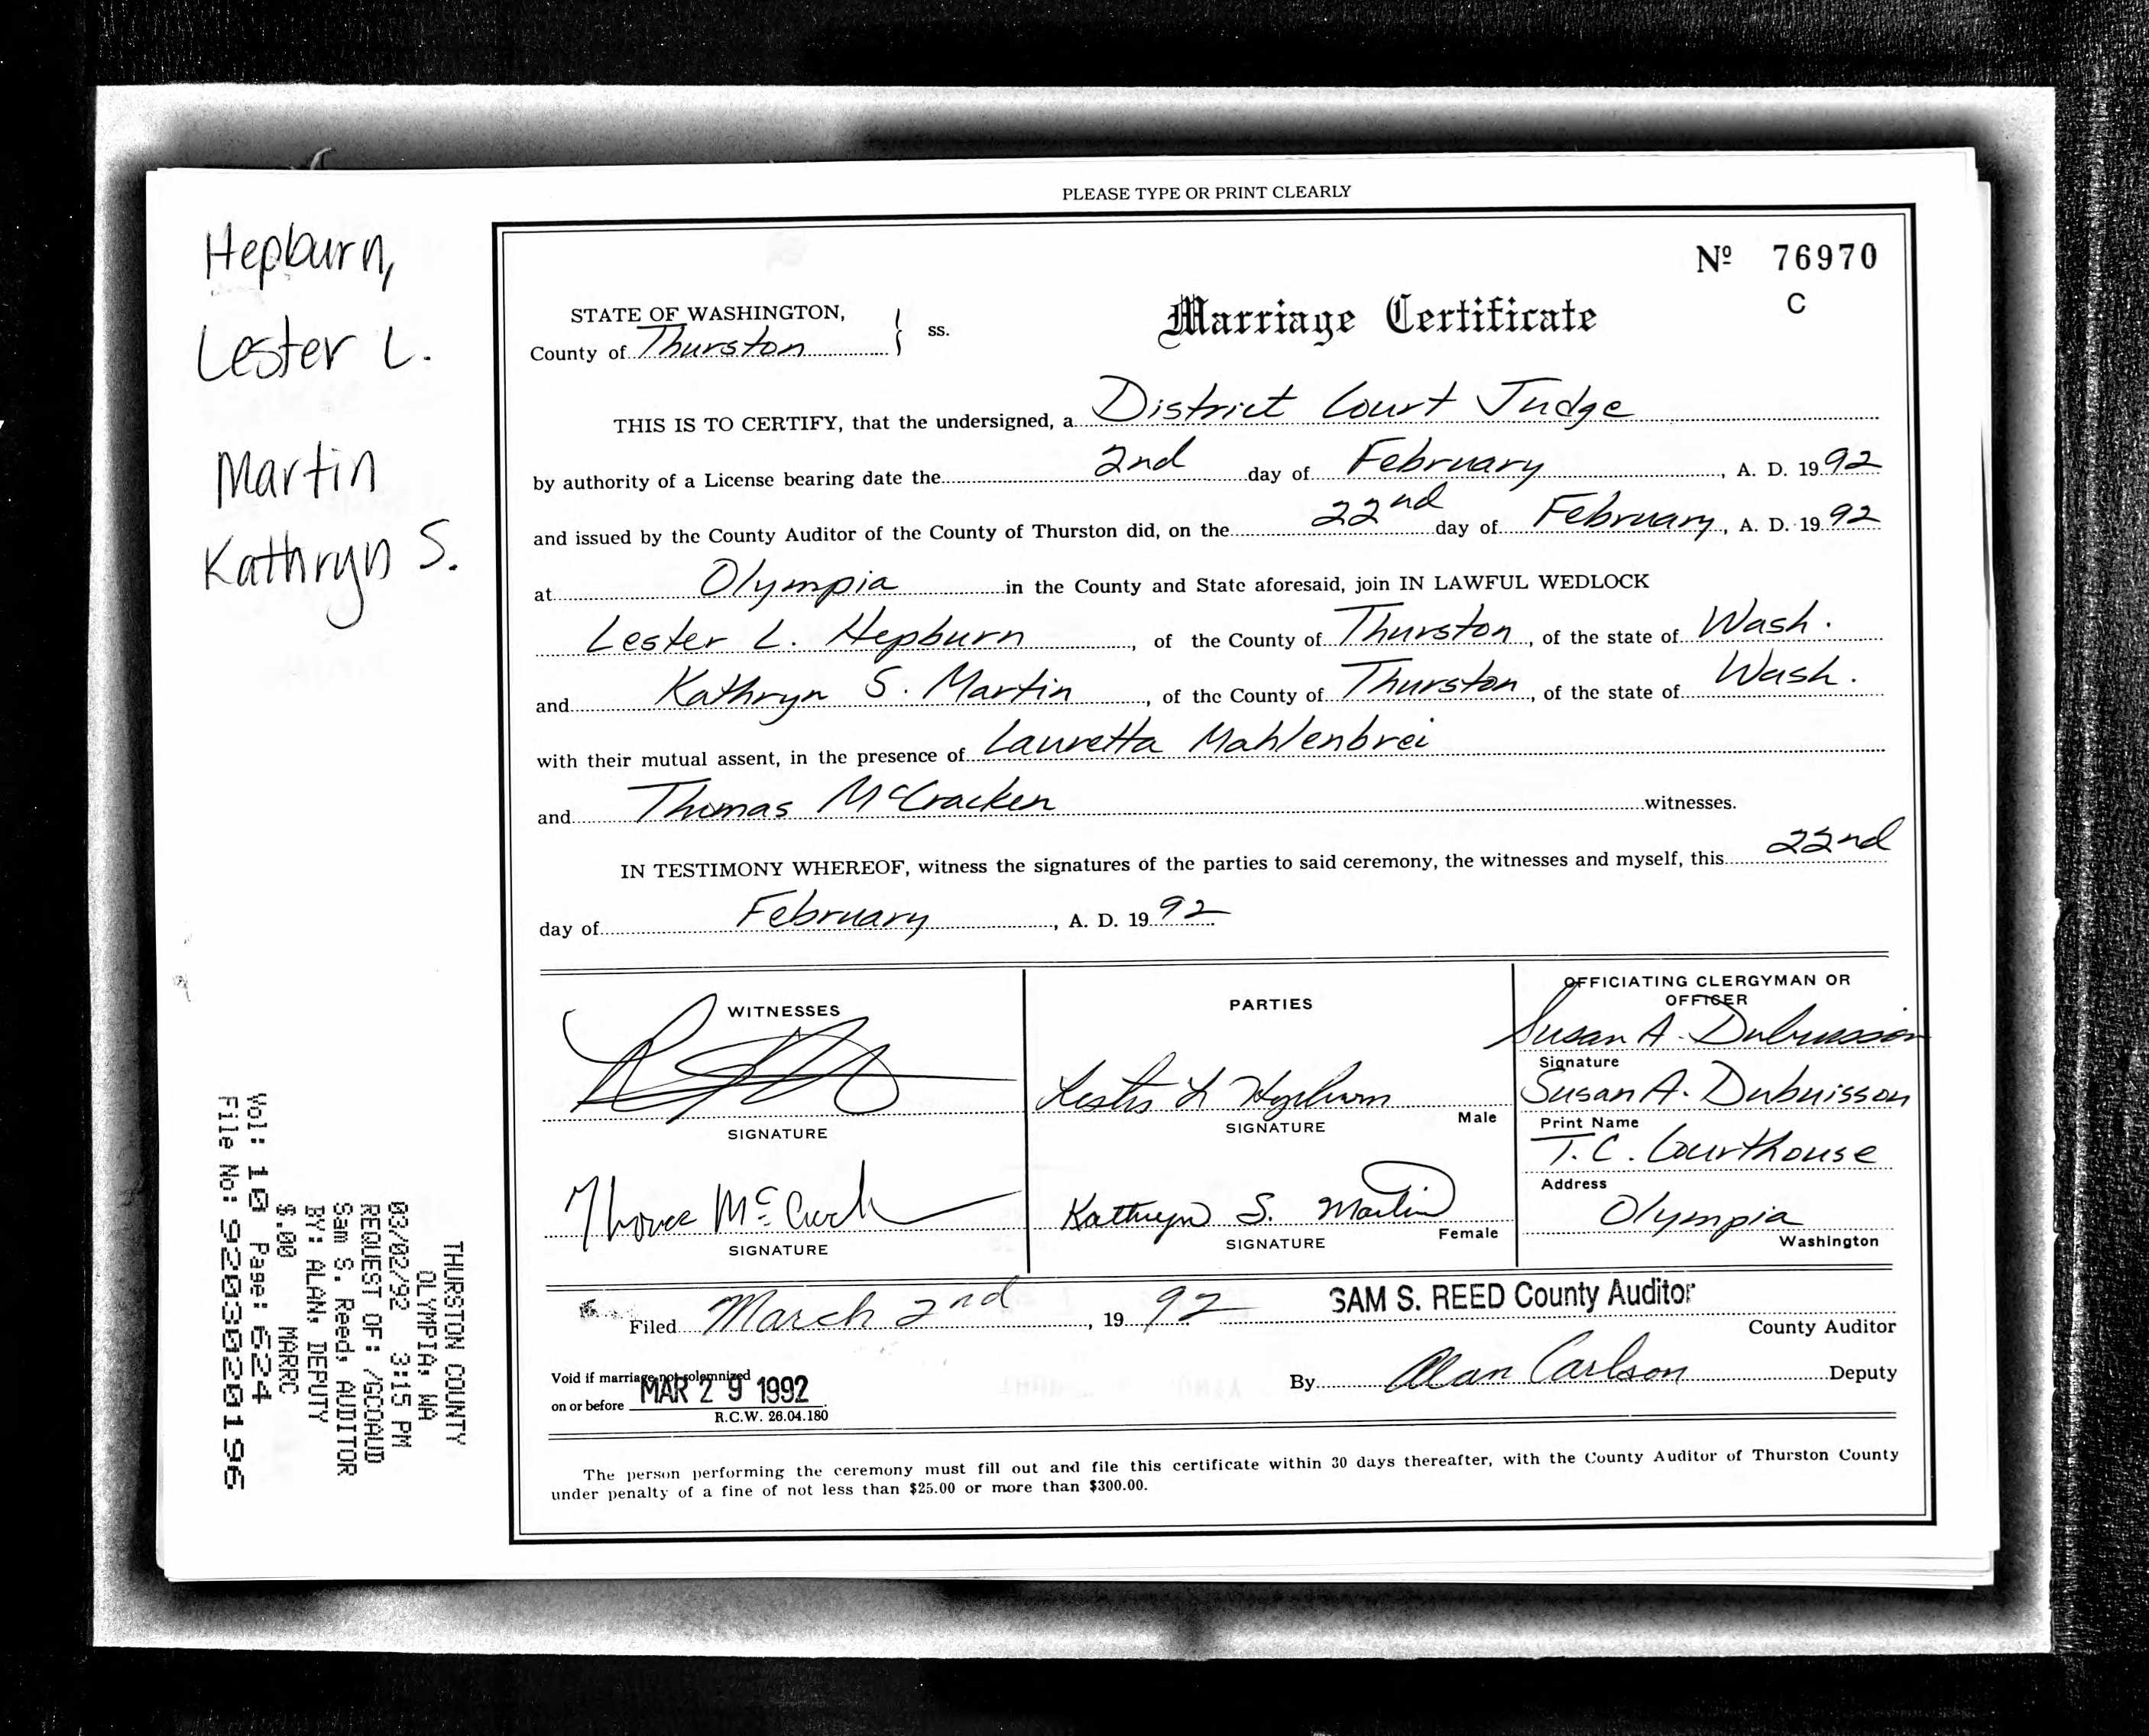 Hepburn,
Lester L.
Martin
Kathryn S.
PLEASE TYPE OR PRINT CLEARLY
Nº 76970
C
STATE OF WASHINGTON,
County of Thurston } ss.
Marriage Certificate
THIS IS TO CERTIFY, that the undersigned, a District Court Judge
by authority of a License bearing date the 2nd day of February, A. D. 1992
and issued by the County Auditor of the County of Thurston did, on the 22nd day of February, A. D. 1992
at Olympia in the County and State aforesaid, join IN LAWFUL WEDLOCK
Lester L. Hepburn, of the County of Thurston, of the state of Wash.
and Kathryn S. Martin, of the County of Thurston, of the state of Wash.
with their mutual assent, in the presence of Lauretta Mahlenbrei
and Thomas McCracken witnesses.
IN TESTIMONY WHEREOF, witness the signatures of the parties to said ceremony, the witnesses and myself, this 22nd
day of February, A. D. 1992
WITNESSES
SIGNATURE
Thomas
SIGNATURE
PARTIES
Lester L Hepburn
Male
SIGNATURE
Kathryn S. Martin
Female
SIGNATURE
OFFICIATING CLERGYMAN OR
OFFICER
Susan A. Dubuisson
Signature
Susan A. Dubuisson
Print Name
T.C. Courthouse
Address
Olympia
Washington
Filed March 2nd, 1992
SAM S. REED County Auditor
County Auditor
Void if marriage not solemnized
on or before MAR 29 1992
R.C.W. 26.04.180
By Alan Carlson Deputy
The person performing the ceremony must fill out and file this certificate within 30 days thereafter, with the County Auditor of Thurston County
under penalty of a fine of not less than $25.00 or more than $300.00.
THURSTON COUNTY
OLYMPIA, WA
03/02/92 3:15 PM
REQUEST OF: /GCOAUD
Sam S. Reed, AUDITOR
BY: ALAN, DEPUTY
$.00 MARRC
Vol: 10 Page: 624
File No: 9203020196